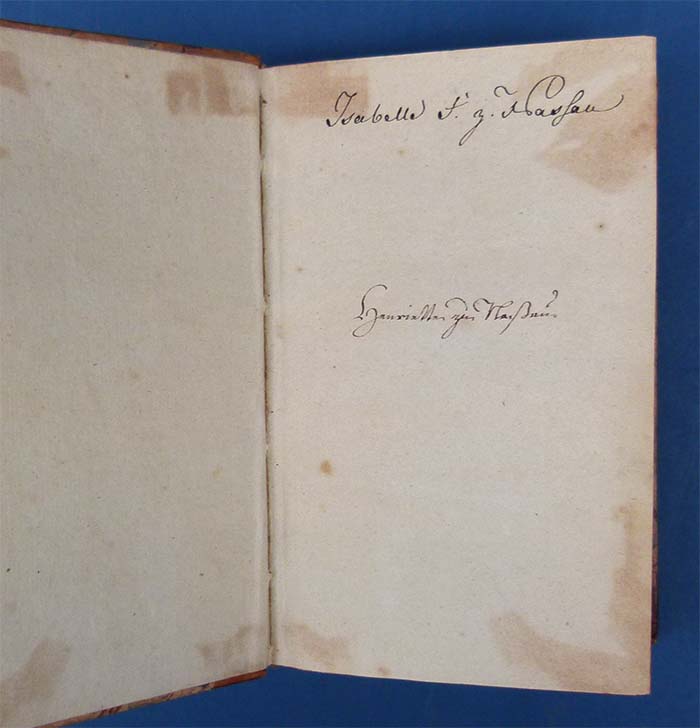 Isabelle F. z. Nassau
Henriette zu Naßau.